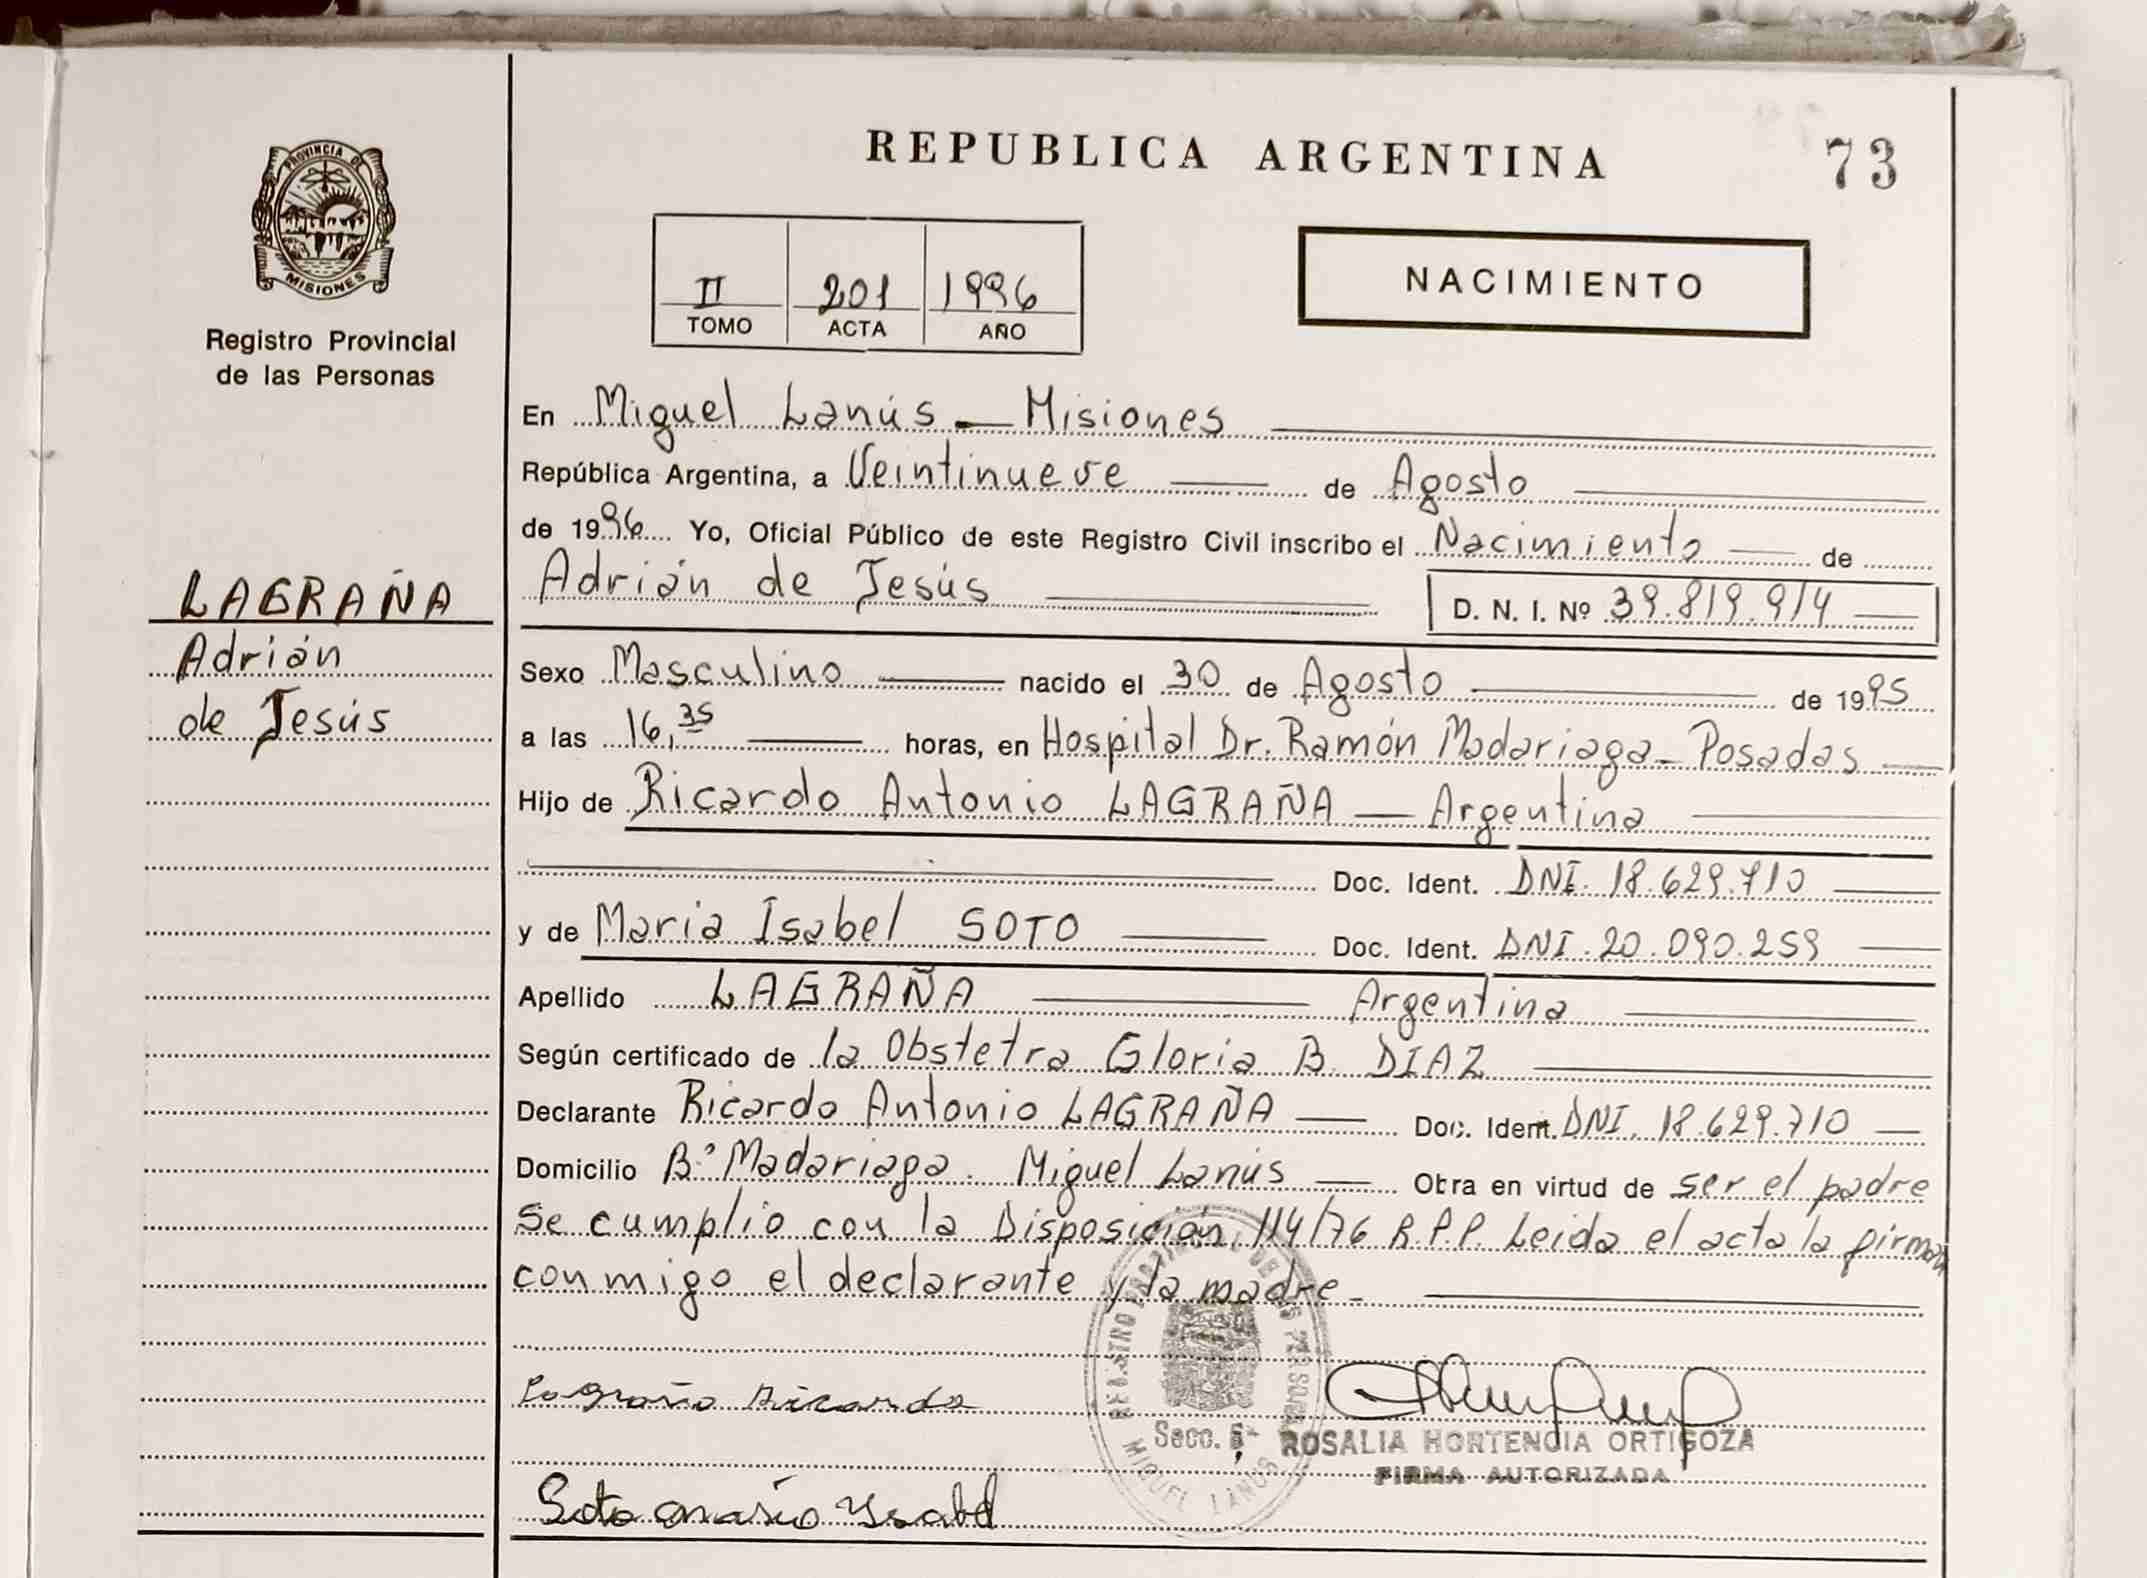 PROVINCIA DE
MISIONES
Registro Provincial
de las Personas
LAGRAÑA
Adrián
de Jesús
REPUBLICA ARGENTINA
73
II 201 1996
TOMO ACTA AÑO
NACIMIENTO
En Miguel Lanús - Misiones
República Argentina, a Veintinueve de Agosto
de 1996 Yo, Oficial Público de este Registro Civil inscribo el Nacimiento de
Adrián de Jesús D. N. I. Nº 39.819.914
Sexo Masculino nacido el 30 de Agosto de 1995
a las 16,35 horas, en Hospital Dr. Ramón Madariaga - Posadas
Hijo de Ricardo Antonio LAGRAÑA - Argentina
Doc. Ident. DNI. 18.629.710
y de Maria Isabel SOTO Doc. Ident. DNI. 20.090.259
Apellido LAGRAÑA Argentina
Según certificado de la Obstetra Gloria B. DIAZ
Declarante Ricardo Antonio LAGRAÑA Doc. Ident. DNI. 18.629.710
Domicilio Bº Madariaga. Miguel Lanús Obra en virtud de ser el padre
se cumplio con la Disposición 114/76 R.P.P. Leida el acta la firman
conmigo el declarante y la madre -
Lagraña Ricardo
Secc. 5ª
MIGUEL LANUS
ROSALIA HORTENCIA ORTIGOZA
FIRMA AUTORIZADA
Soto María Ysabel